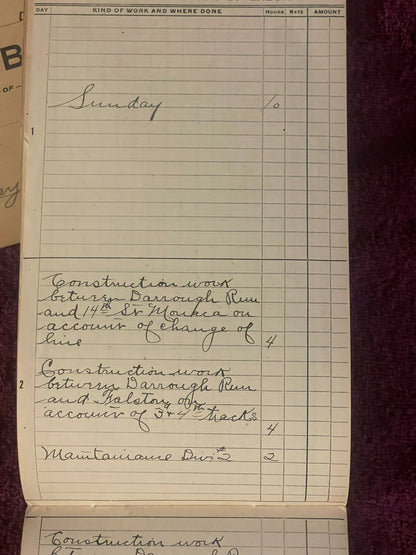 DAY KIND OF WORK AND WHERE DONE HOURS RATE AMOUNT
B
OF
Sunday 10
1
Construction work
between Darrough Run
and 14th St. Monaca on
account of change of
line 4
2
Construction work
between Darrough Run
and on
account of 3d & 4th tracks
4
Maintainance Div 2 2
Construction work